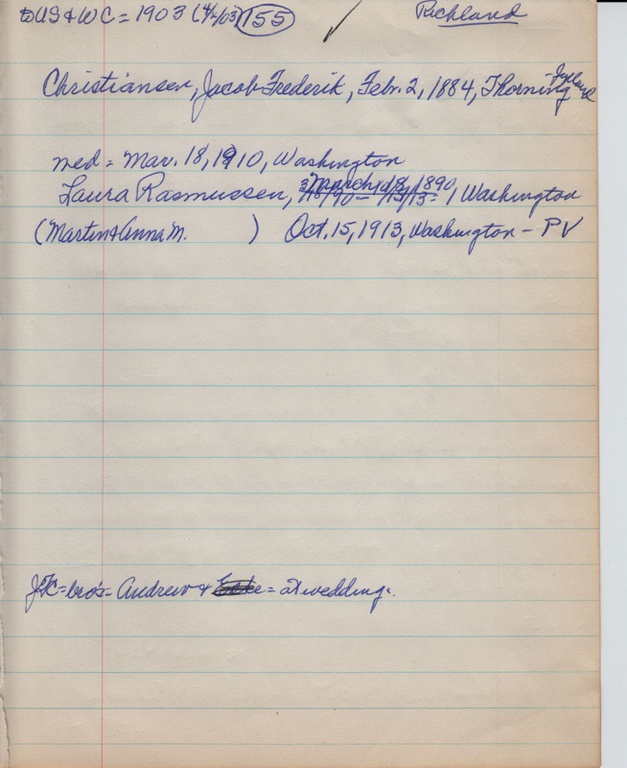 to US & WC = 1903 (4/2/03) 155 ✓ Richland
Christiansen, Jacob Frederik, Febr. 2, 1884, Thorning, Jylland
med = Mar. 18, 1910, Washington
Laura Rasmussen, March 18, 1890, Washington
(Martin & Anna M. ) Oct. 15, 1913, Washington - PV
JFC = bro's = Andrew & = at wedding.